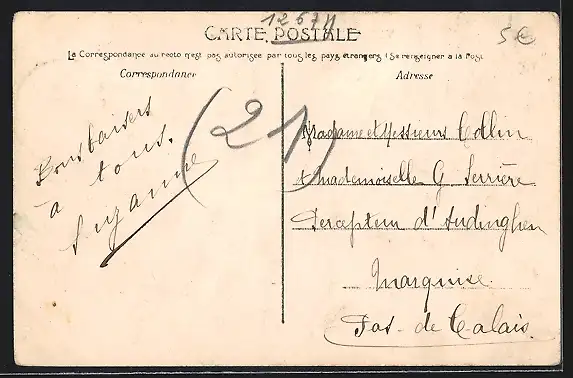 12671
5€
CARTE POSTALE
La Correspondance au recto n'est pas autorisée par tous les pays étrangers (Se renseigner à la Poste
Correspondance
Adresse
(21)
Bons baisers
à tous.
Suzanne
Madame et Messieurs Collin
et mademoiselle G Serrière
Percepteur d'Audinghen
Marquise.
Pas-de-Calais.